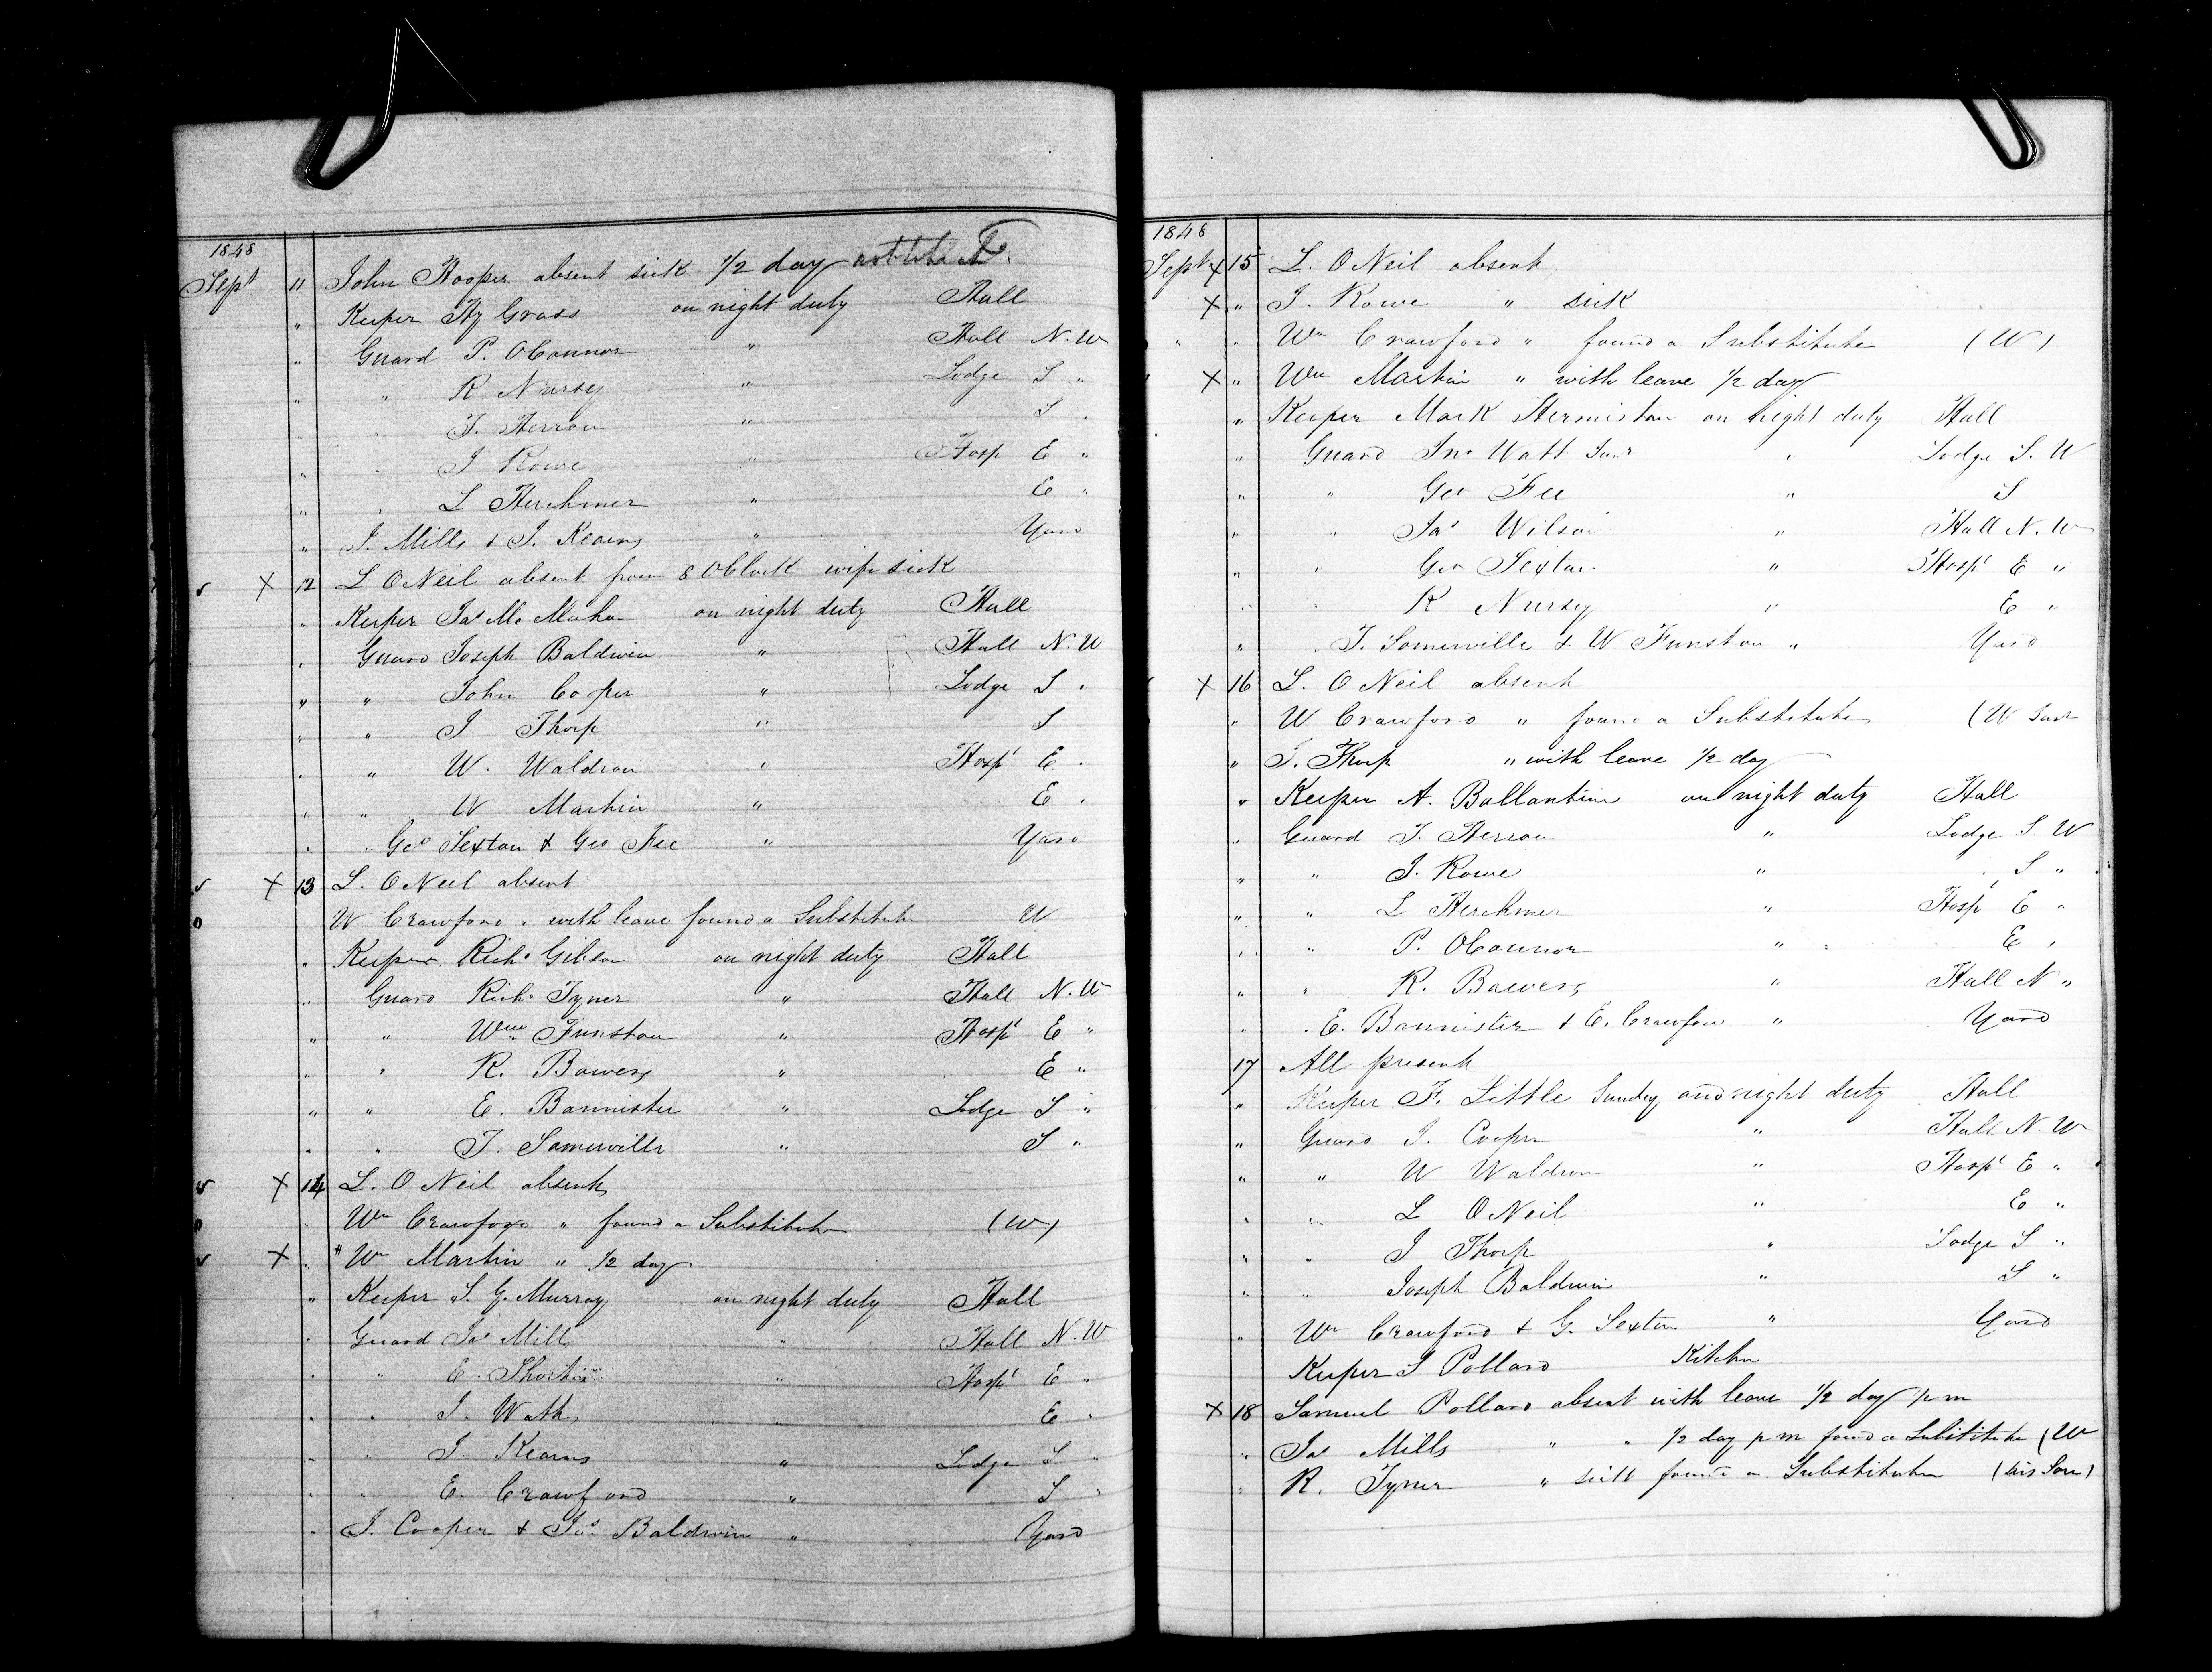 1848
Sept 11 John Hooper absent sick 1/2 day
" Keeper Hy Grass on night duty Hall
" Guard P. OConnor " Hall N. W
" " R Nursey " Lodge S "
" " T. Herron " S "
" " J Rowe " Hosp E "
" " L Herchmer " E "
" J. Mills & J. Kearns " Yard
X 12 L ONeil absent from 8 OClock wife sick
" Keeper Jas Mc Mahon on night duty Hall
" Guard Joseph Baldwin " Hall N. W
" " John Cooper " Lodge S "
" " J Thorp " S
" " W. Waldron " Hospl E "
" " W Martin " E "
" " Geo Sexton & Geo Fee " Yard
X 13 L. ONeil absent
0 W Crawford " with leave found a Substitute W
" Keeper Richd Gibson on night duty Hall
" Guard Richd Tyner " Hall N. W
" " Wm Funston " Hospl E "
" " R. Bowers " E "
" " E. Bannister " Lodge S "
" " T. Somerville " S "
X 14 L. O Neil absent
0 " Wm Crawford " found a Substitute (W)
X " Wm Martin " 1/2 day
" Keeper S. G. Murray on night duty Hall
" Guard Jas Mill " Hall N. W
" " E. " Hospl E "
" " J. Watt " E "
" " J. Kearns " Lodge S "
" " E. Crawford " S "
" J. Cooper & Jos Baldwin " Yard
1848
Sept X 15 L. O Neil absent
X " J. Rowe " sick
" " Wm Crawford " found a Substitute (W)
X " Wm Martin " with leave 1/2 day
" Keeper Mark Hermiston on night duty Hall
" Guard Jno Watt Junr " Lodge S. W
" " Geo Fee " S
" " Jas Wilson " Hall N. W
" " Geo Sexton " Hospl E "
" " R Nursey " E "
" " T. Somerville & W Funston " Yard
X 16 L. O Neil absent
" W Crawford " found a Substitute (W Junr
" J. Thorp " with leave 1/2 day
" Keeper A. Ballantine on night duty Hall
" Guard T. Herron " Lodge S. W
" " J. Rowe " S "
" " L Herchmer " Hospl E "
" " P. OConnor " E "
" " R. Bowers " Hall N "
" " E. Bannister & E. Crawford " Yard
17 All present
" Keeper F. Little Sunday and night duty Hall
" Guard J. Cooper " Hall N. W
" " W Waldron " Hospl E "
" " L ONeil " E "
" " J Thorp " Lodge S "
" " Joseph Baldwin " S "
" Wm Crawford & G. Sexton " Yard
Keeper S Pollard Kitchen
X 18 Samuel Pollard absent with leave 1/2 day p m
" Jas Mills " " 1/2 day p m found a Substitute (W
" R. Tyner " sick found a Substitute (his Son)